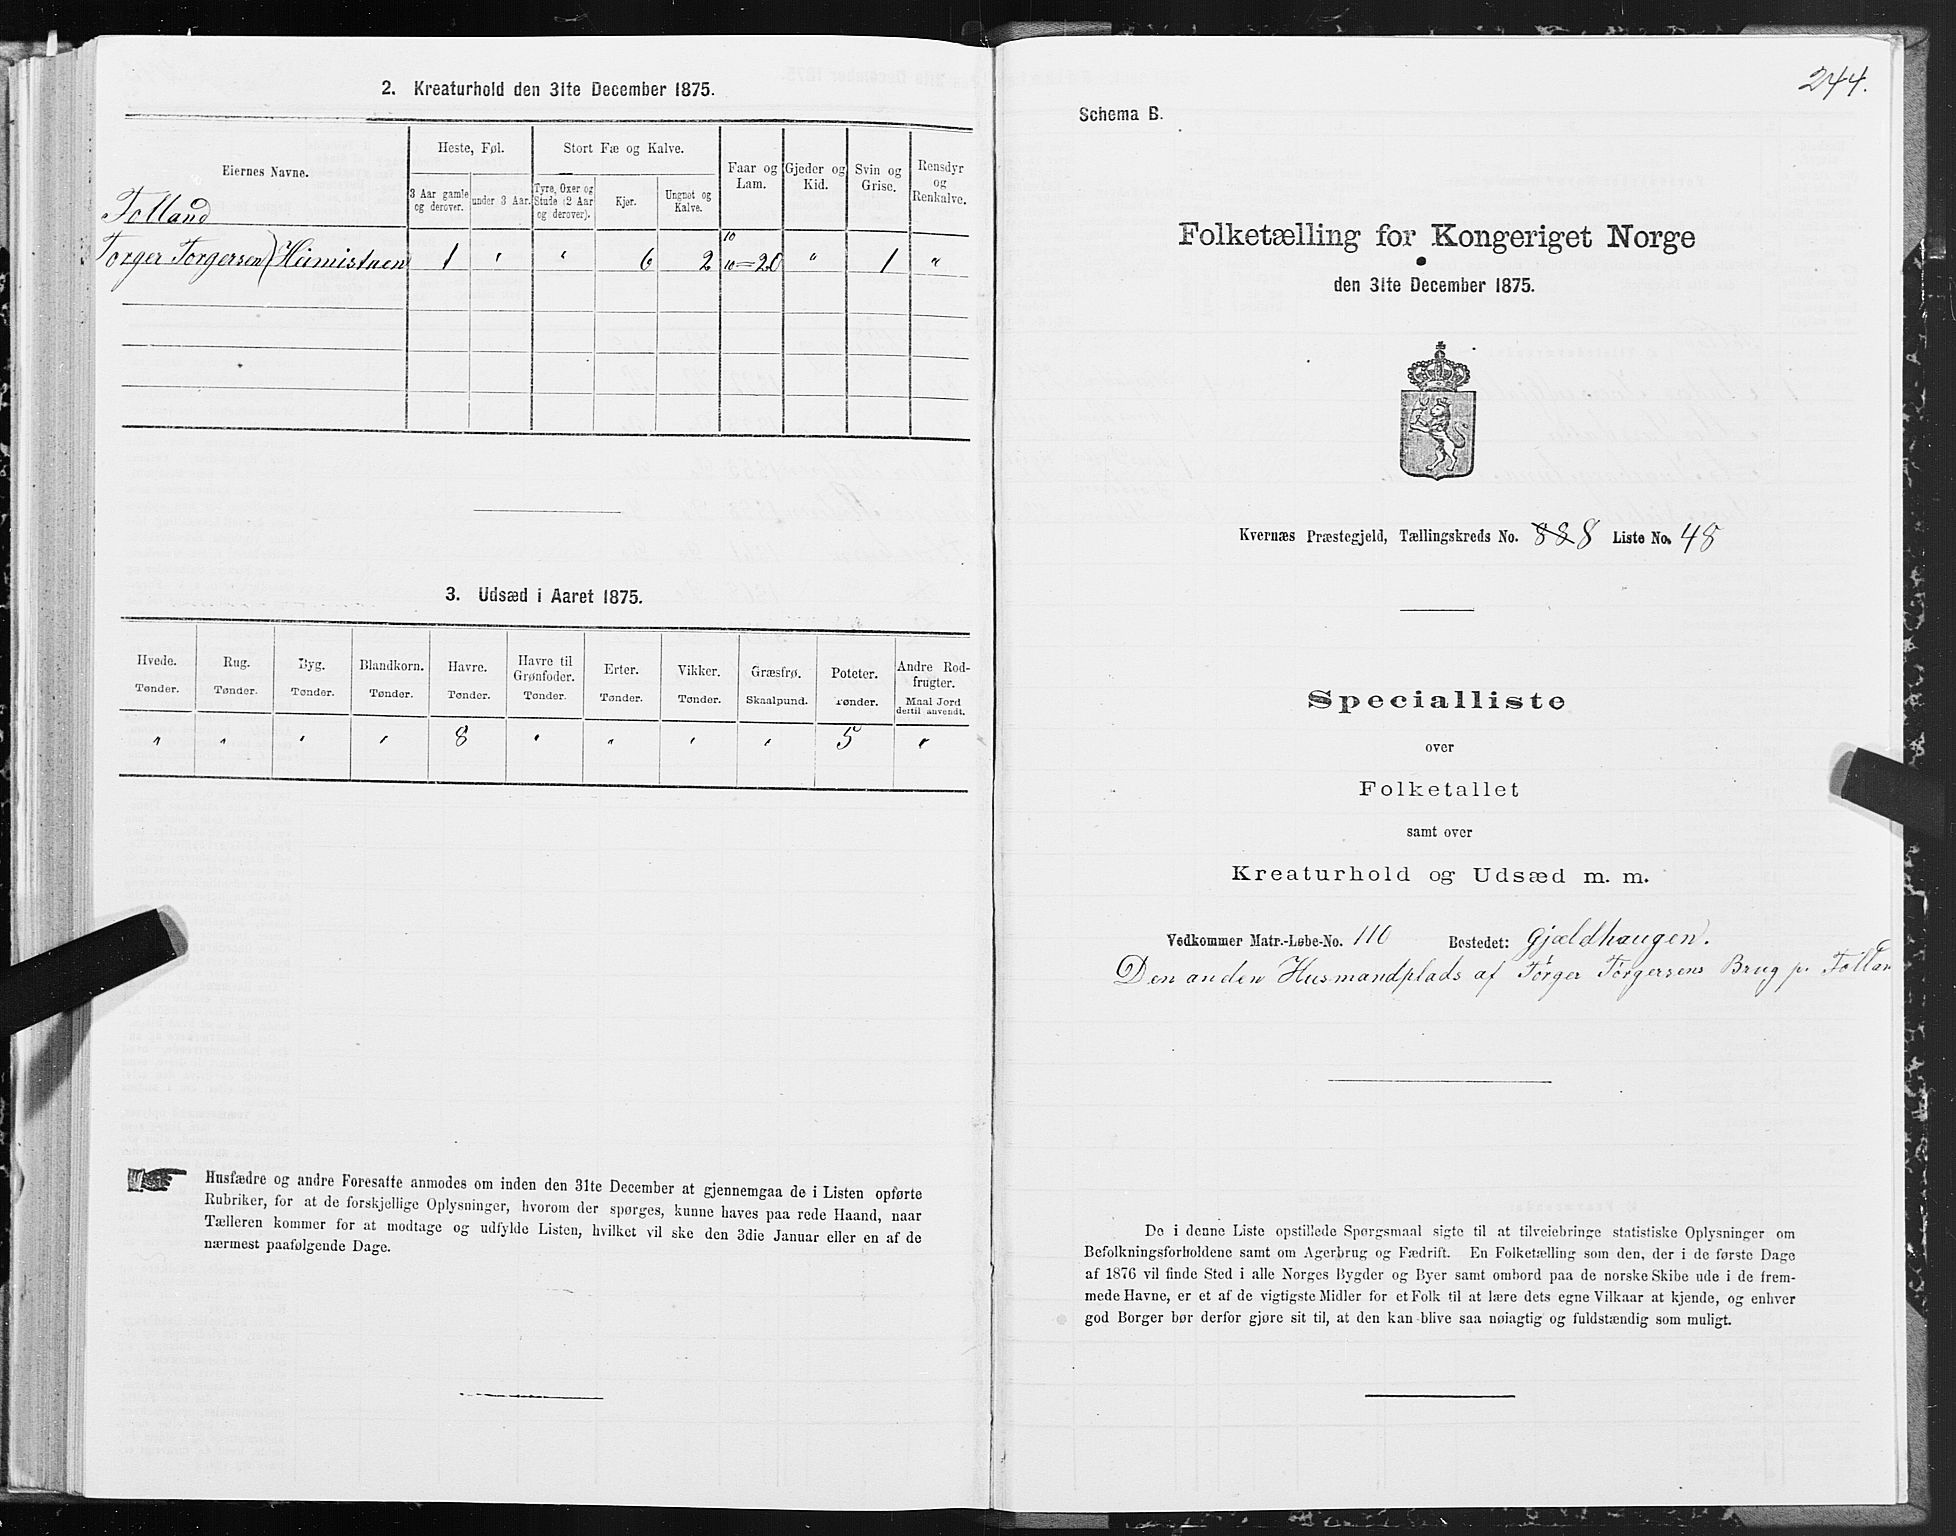 2. Kreaturhold den 31te December 1875.
Eiernes Navne.
Heste, Føl.
Stort Fæ og Kalve.
Faar og Lam.
Gjeder og Kid.
Svin og Grise.
Rensdyr og Renkalve.
3 Aar gamle og derover.
under 3 Aar.
Tyre, Oxer og Stude (2 Aar og derover).
Kjør.
Ungnøt og Kalve.
Tolland
Torger Torgersen (Heimistuen 1 " " 6 2 10 10=20 " 1 "
3. Udsæd i Aaret 1875.
Hvede. Rug. Byg. Blandkorn. Havre. Havre til Grønfoder. Erter. Vikker. Græsfrø. Poteter. Andre Rodfrugter.
Tønder. Tønder. Tønder. Tønder. Tønder. Tønder. Tønder. Tønder. Skaalpund. Tønder. Maal Jord dertil anvendt.
" " " " 8 " " " " 5 "
Husfædre og andre Foresatte anmodes om inden den 31te December at gjennemgaa de i Listen opførte
Rubriker, for at de forskjellige Oplysninger, hvorom der spørges, kunne haves paa rede Haand, naar
Tælleren kommer for at modtage og udfylde Listen, hvilket vil ske den 3die Januar eller en af de
nærmest paafølgende Dage.
244.
Schema B.
Folketælling for Kongeriget Norge
den 31te December 1875.
Kvernæs Præstegjeld, Tællingskreds No. 888 Liste No. 48
Specialliste
over
Folketallet
samt over
Kreaturhold og Udsæd m. m.
Vedkommer Matr.-Løbe-No. 110 Bostedet: Gjældhaugen.
Den anden Husmandplads af Torger Torgersens Brug p. Tolland
De i denne Liste opstillede Spørgsmaal sigte til at tilveiebringe statistiske Oplysninger om
Befolkningsforholdene samt om Agerbrug og Fædrift. En Folketælling som den, der i de første Dage
af 1876 vil finde Sted i alle Norges Bygder og Byer samt ombord paa de norske Skibe ude i de frem-
mede Havne, er et af de vigtigste Midler for et Folk til at lære dets egne Vilkaar at kjende, og enhver
god Borger bør derfor gjøre sit til, at den kan blive saa nøiagtig og fuldstændig som muligt.